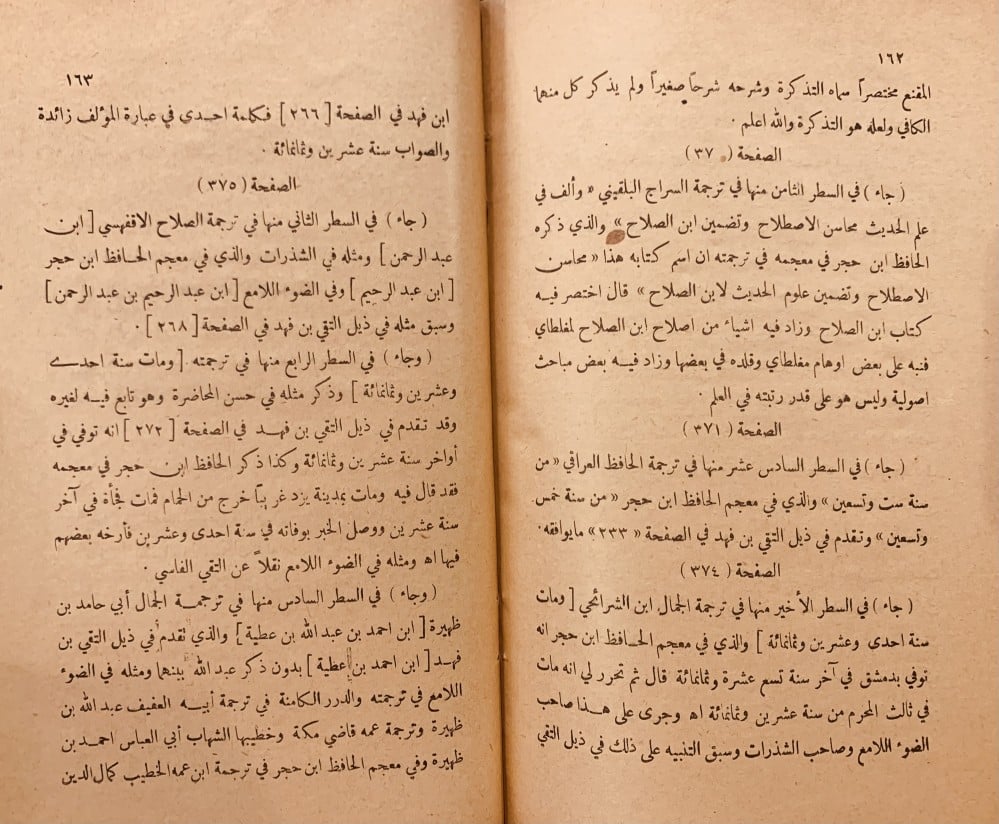 ١٦٢
المقنع مختصراً سماه التذكرة وشرحه شرحاً صغيراً ولم يذكر كل منهما
الكافي ولعله هو التذكرة والله اعلم ٠
الصفحة ( ٣٧٠ )
( جاء ) في السطر الثامن منها في ترجمة السراج البلقيني « وألف في
علم الحديث محاسن الاصطلاح وتضمين ابن الصلاح » والذي ذكره
الحافظ ابن حجر في معجمه في ترجمته ان اسم كتابه هذا « محاسن
الاصطلاح وتضمين علوم الحديث لابن الصلاح » قال اختصر فيه
كتاب ابن الصلاح وزاد فيه اشياء من اصلاح ابن الصلاح لمغلطاي
فنبه على بعض اوهام مغلطاي وقلده في بعضها وزاد فيه بعض مباحث
اصولية وليس هو على قدر رتبته في العلم ٠
الصفحة ( ٣٧١ )
( جاء ) في السطر السادس عشر منها في ترجمة الحافظ العراقي « من
سنة ست وتسعين » والذي في معجم الحافظ ابن حجر « من سنة خمس
وتسعين » وتقدم في ذيل التقي بن فهد في الصفحة « ٢٣٣ » مايوافقه ٠
الصفحة ( ٣٧٤ )
( جاء ) في السطر الأخير منها في ترجمة الجمال ابن الشرائحي [ ومات
سنة احدى وعشرين وثمانمائة ] والذي في معجم الحافظ ابن حجر انه
توفي بدمشق في آخر سنة تسع عشرة وثمانمائة قال ثم تحرر لي انه مات
في ثالث المحرم من سنة عشرين وثمانمائة اه وجرى على هذا صاحب
الضوء اللامع وصاحب الشذرات وسبق التنبيه على ذلك في ذيل التقي
١٦٣
ابن فهد في الصفحة [ ٢٦٦ ] فكلمة احدى في عبارة المؤلف زائدة
والصواب سنة عشرين وثمانمائة ٠
الصفحة ( ٣٧٥ )
( جاء ) في السطر الثاني منها في ترجمة الصلاح الاقفهسي [ ابن
عبد الرحمن ] ومثله في الشذرات والذي في معجم الحافظ ابن حجر
[ ابن عبد الرحيم ] وفي الضوء اللامع [ ابن عبد الرحيم بن عبد الرحمن ]
وسبق مثله في ذيل التقي بن فهد في الصفحة [ ٢٦٨ ] ٠
( وجاء ) في السطر الرابع منها في ترجمته [ ومات سنة احدى
وعشرين وثمانمائة ] وذكر مثله في حسن المحاضرة وهو تابع فيه لغيره
وقد تقدم في ذيل التقي بن فهد في الصفحة [ ٢٧٢ ] انه توفي في
أواخر سنة عشرين وثمانمائة وكذا ذكر الحافظ ابن حجر في معجمه
فقد قال فيه ومات بمدينة يزد غريباً خرج من الحمام فمات فجأة في آخر
سنة عشرين ووصل الخبر بوفاته في سنة احدى وعشرين فأرخه بعضهم
فيها اه ومثله في الضوء اللامع نقلاً عن التقي الفاسي ٠
( وجاء ) في السطر السادس منها في ترجمة الجمال أبي حامد بن
ظهيرة [ ابن احمد بن عبد الله بن عطية ] والذي تقدم في ذيل التقي بن
فهد [ ابن احمد بن عطية ] بدون ذكر عبد الله بينهما ومثله في الضوء
اللامع في ترجمته والدرر الكامنة في ترجمة أبيه العفيف عبد الله بن
ظهيرة وترجمة عمه قاضي مكة وخطيبها الشهاب أبي العباس احمد بن
ظهيرة وفي معجم الحافظ ابن حجر في ترجمة ابن عمه الخطيب كمال الدين